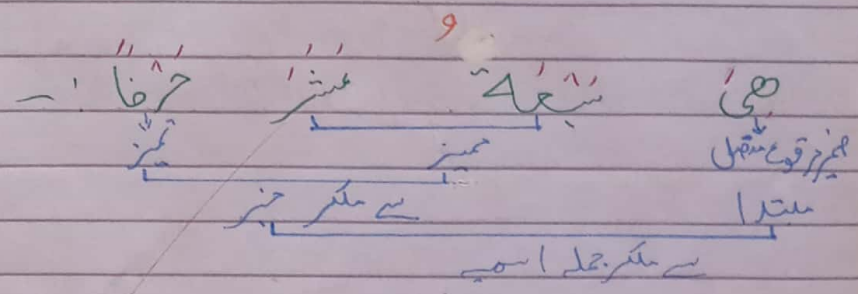 و
هِیَ سَبْعَةَ عَشَرَ حَرْفاً :-
ضمیر مرفوع منفصل ممیز تمیز
مبتدا سے ملکر خبر
سے ملکر جملہ اسمیہ